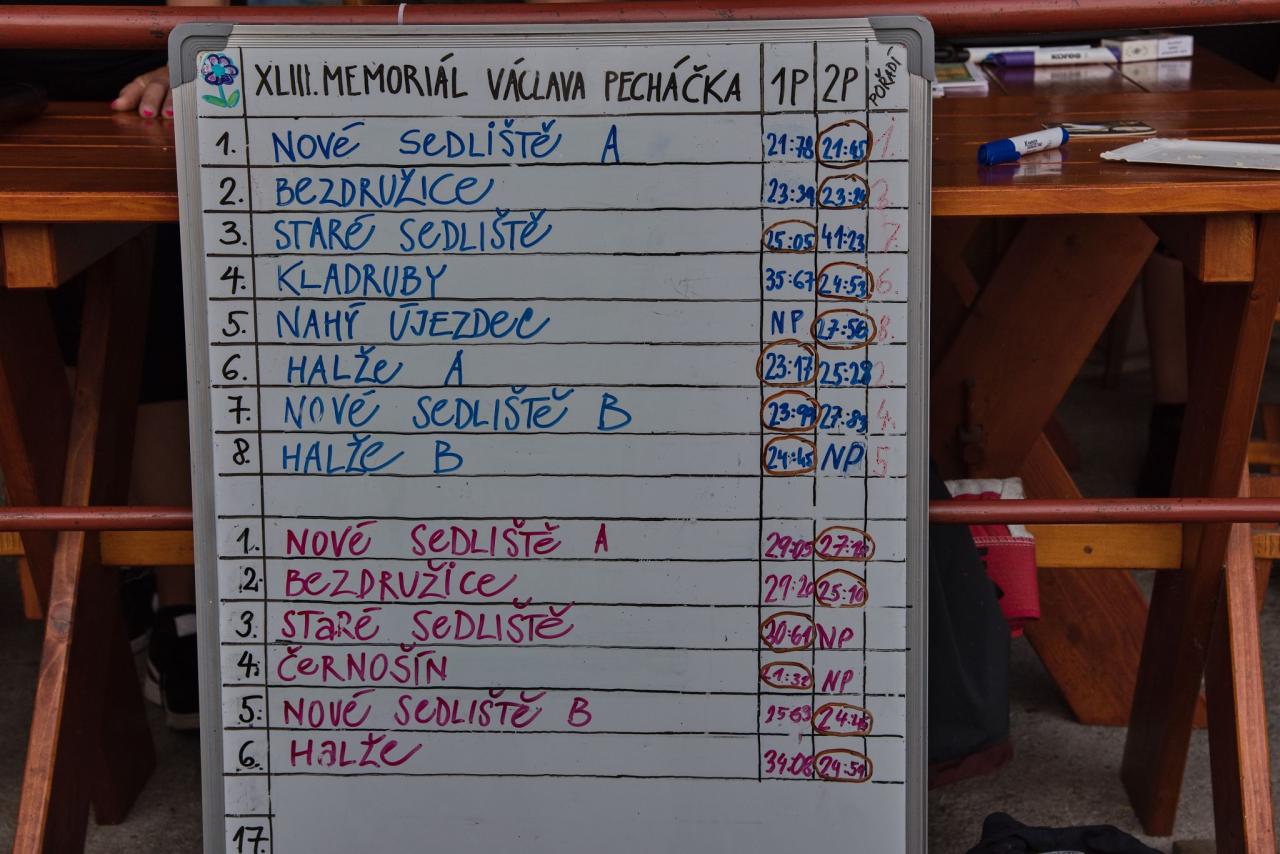 XLIII. MEMORIÁL VÁCLAVA PECHÁČKA 1P 2P POŘADÍ
1. NOVÉ SEDLIŠTĚ A 21:78 21:45 1.
2. BEZDRUŽICE 23:39 3.
3. STARÉ SEDLIŠTĚ 25:05 41:23 7.
4. KLADRUBY 35:67 24:53 6.
5. NAHÝ ÚJEZDEC NP 27:56 8.
6. HALŽE A 23:17 25:28 2.
7. NOVÉ SEDLIŠTĚ B 27:83 4.
8. HALŽE B 24:45 NP 5
1. NOVÉ SEDLIŠTĚ A 29:05
2. BEZDRUŽICE 25:10
3. STARÉ SEDLIŠTĚ 30:61 NP
4. ČERNOŠÍN NP
5. NOVÉ SEDLIŠTĚ B
6. HALŽE 34:08 24:59
17.